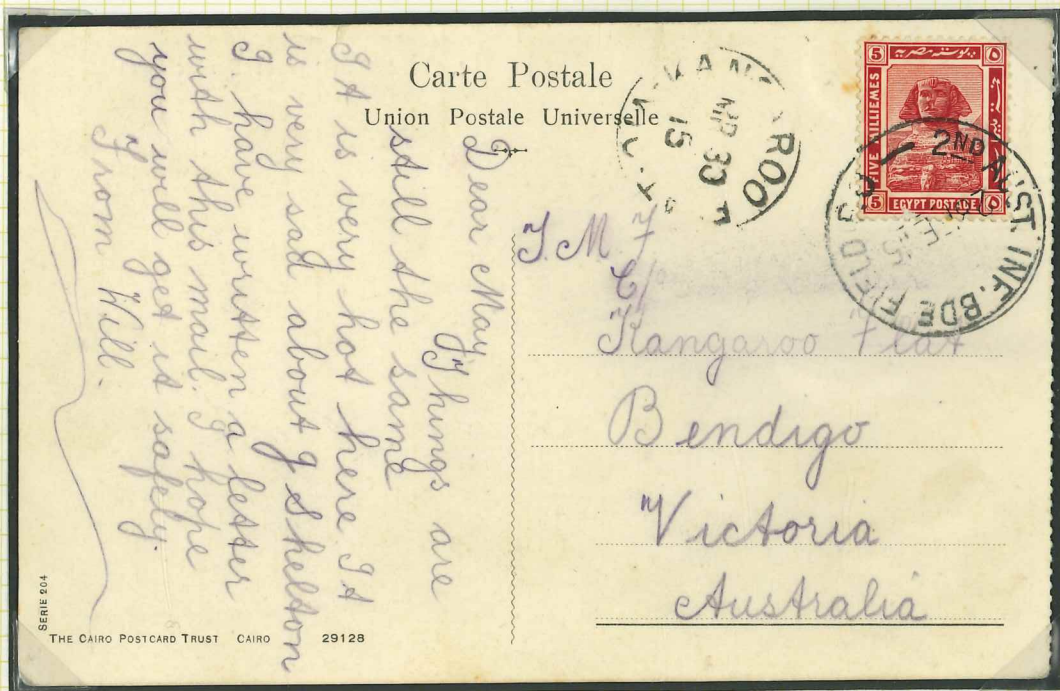 Carte Postale
Union Postale Universelle
Dear May
Things are
still the same
It is very hot here. It
is very sad about J Shelton
I have written a letter
with this mail. I hope
you will get it safely.
From Will.
Kangaroo Flat
Bendigo
Victoria
Australia
KANGAROO F
MR 30
15
5 بوستة مصرية ٥
FIVE MILLIEMES
EGYPT POSTAGE
5 ٥
2ND AUST. INF. BDE FIELD
SERIE 204
THE CAIRO POSTCARD TRUST CAIRO 29128